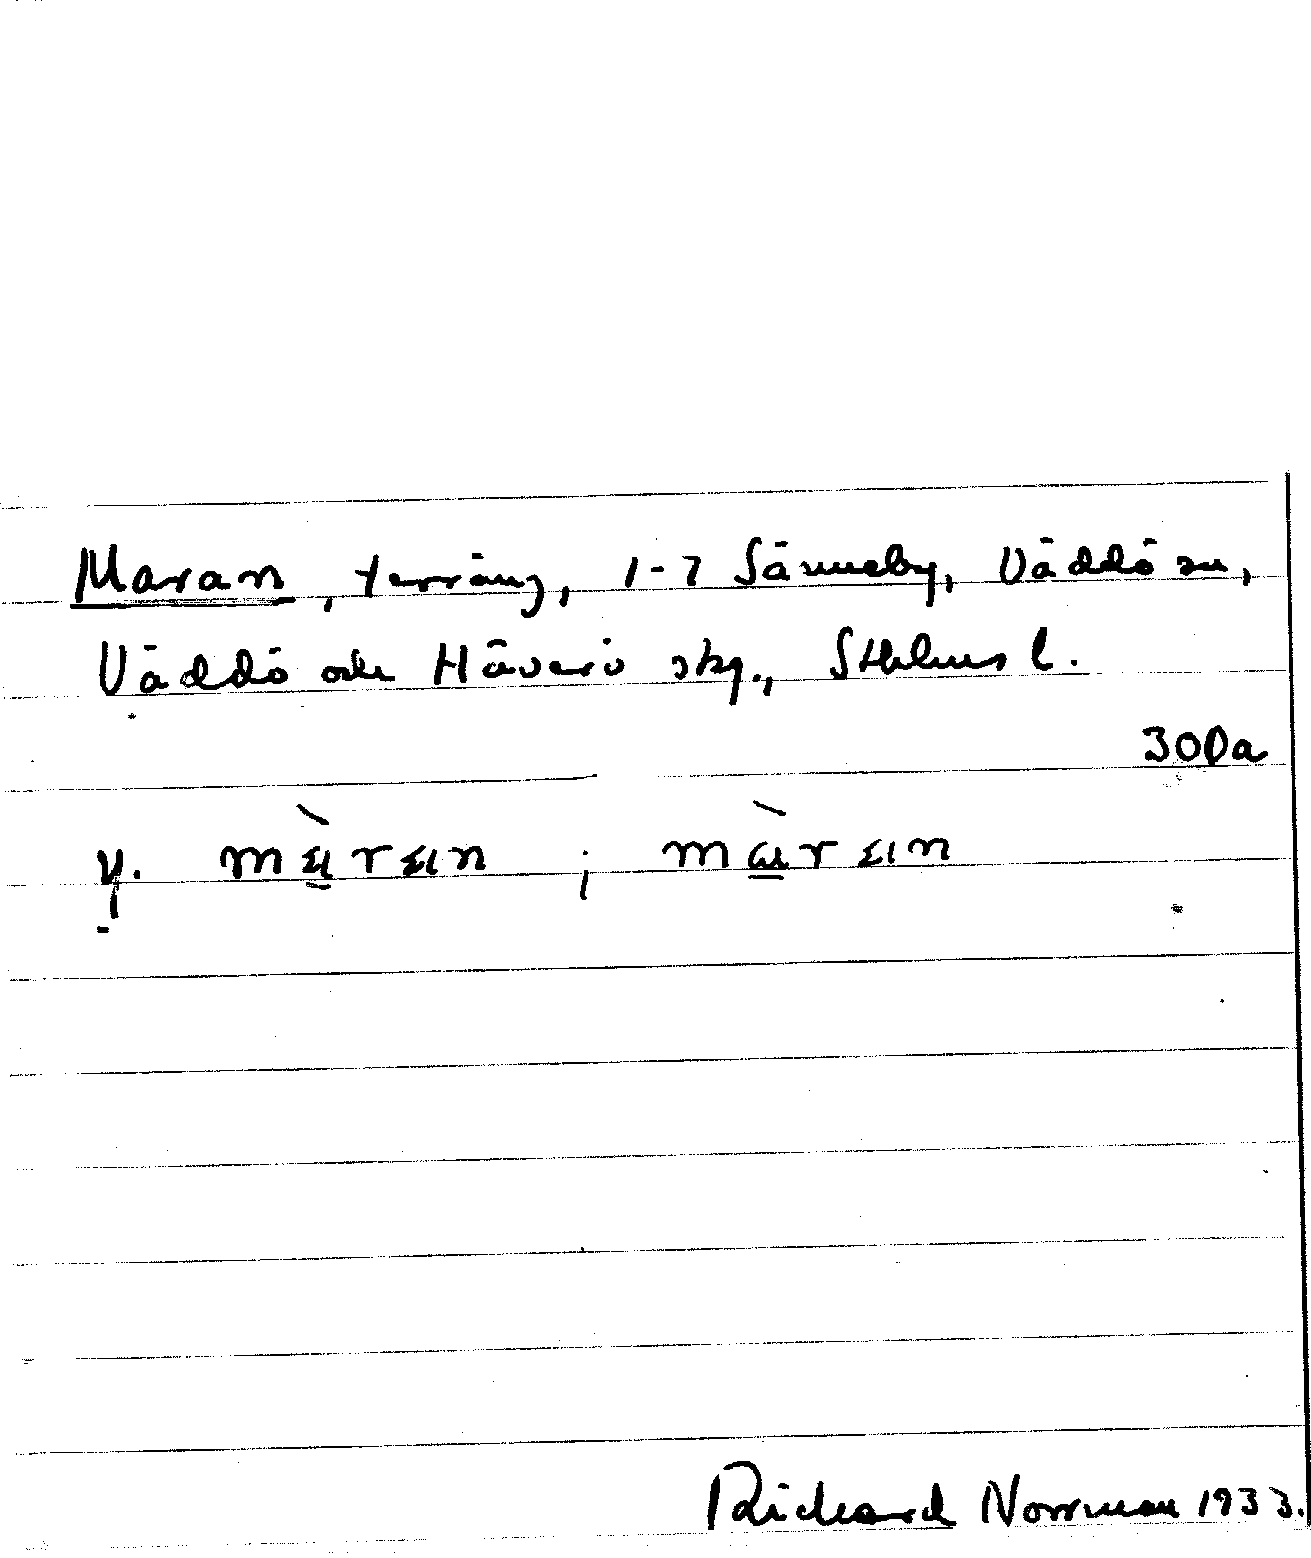 Maran, terräng, 1-7 Sänneby, Väddö sn,
Väddö och Häverö skg., Sthlms l.
30Da
y.
Richard Norrman 1933.